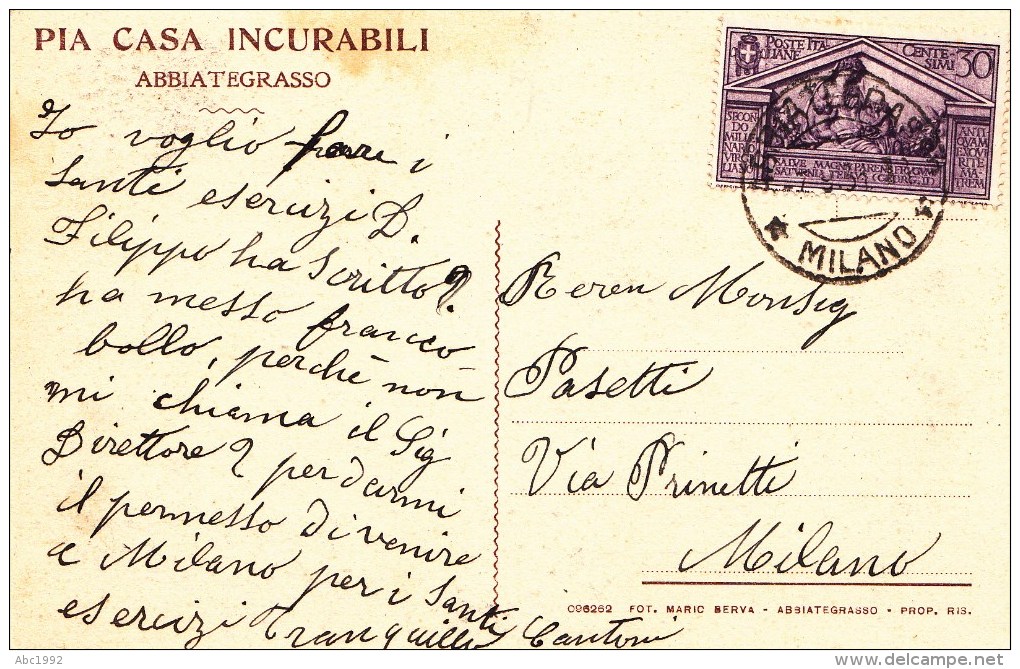 PIA CASA INCURABILI
ABBIATEGRASSO
Io voglio fare i
Santi esercizi D.
Filippo ha scritto?
ha messo franco
bollo, perchè non
mi chiama il Sig
Direttore? per darmi
il permesso di venire
a Milano per i Santi
esercizi Tranquillo Cantoni
POSTE ITA
LIANE
CENTE
SIMI 30
SECON
DO MIL
NARIO
VIRGI
LIANO
SALVE MAGNA PARENS FRUGUM
SATURNIA TELLUS
ANTI
QUAM
EXQVI
RITE
MA
TREM
MILANO
Reren Monsig
Pasetti
Via Prinetti
Milano
096262 FOT. MARIO BERVA - ABBIATEGRASSO - PROP. RIS.
Abc1992
delcampe.net